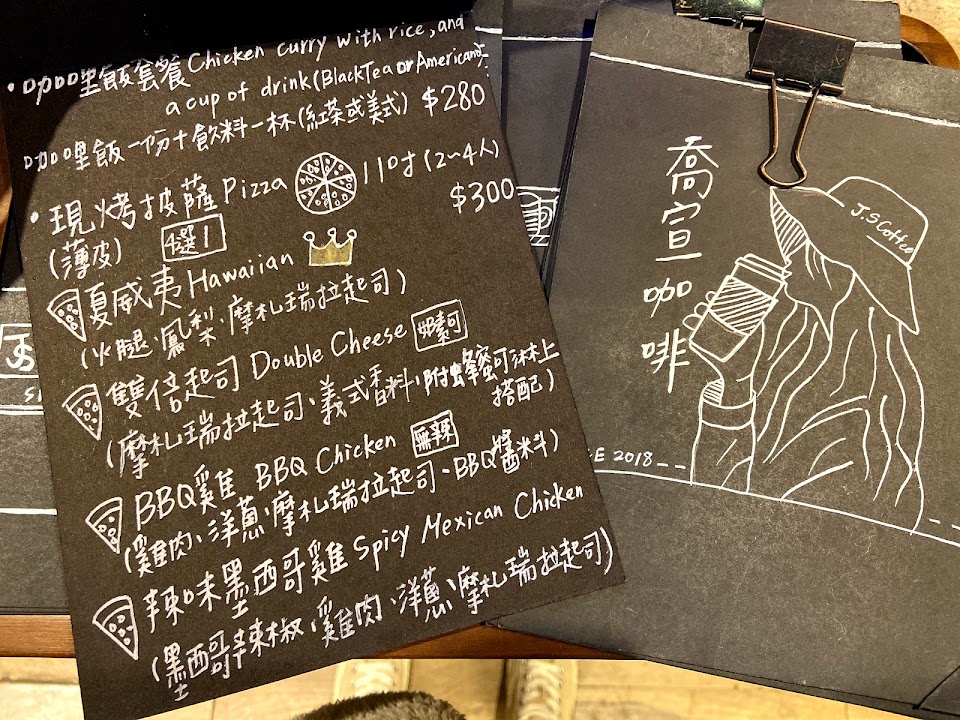 • 咖哩飯套餐 Chicken curry with rice, and
a cup of drink (Black Tea or Americano)
咖哩飯一份+飲料一杯(紅茶或美式) $280
• 現烤披薩 Pizza 11吋(2~4人)
$300
(薄皮) 4選1
夏威夷 Hawaiian
(火腿、鳳梨、摩札瑞拉起司)
雙倍起司 Double Cheese
(摩札瑞拉起司、義式香料,附蜂蜜可沐上
搭配)
BBQ雞 BBQ Chicken 無辣
(雞肉、洋蔥、摩札瑞拉起司、BBQ醬料)
辣味墨西哥雞 Spicy Mexican Chicken
(墨西哥辣椒、雞肉、洋蔥、摩札瑞拉起司)
喬宣咖啡
J.S Coffee
CE 2018--